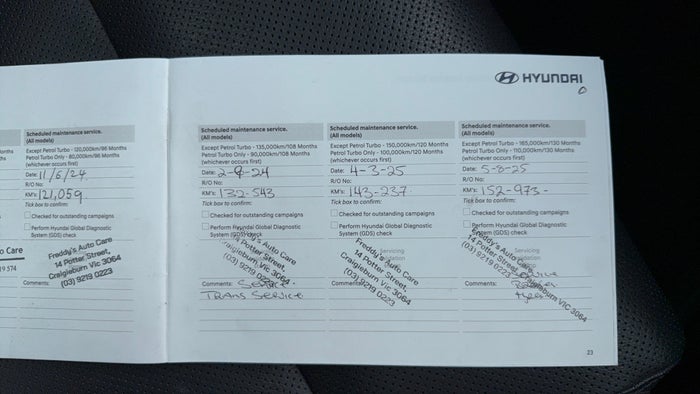 HYUNDAI
Scheduled maintenance service.
(All models)
Except Petrol Turbo - 120,000km/96 Months
Petrol Turbo Only - 80,000km/96 Months
(whichever occurs first)
Date: 11/6/24
R/O No:
KM's: 121,059.
Tick box to confirm:
Checked for outstanding campaigns
Perform Hyundai Global Diagnostic
System (GDS) check
o Care
19 574
Freddy's Auto Care
14 Potter Street,
Craigieburn Vic 3064
(03) 9219 0223
Comments:
Scheduled maintenance service.
(All models)
Except Petrol Turbo - 135,000km/108 Months
Petrol Turbo Only - 90,000km/108 Months
(whichever occurs first)
Date: 2-9-24
R/O No:
KM's: 132-543
Tick box to confirm:
Checked for outstanding campaigns
Perform Hyundai Global Diagnostic
System (GDS) check
Freddy's Auto Care
14 Potter Street,
Craigieburn Vic 3064
(03) 9219 0223
Comments: Service -
Trans Service
Scheduled maintenance service.
(All models)
Except Petrol Turbo - 150,000km/120 Months
Petrol Turbo Only - 100,000km/120 Months
(whichever occurs first)
Date: 4-3-25
R/O No:
KM's: 143-237.
Tick box to confirm:
Checked for outstanding campaigns
Perform Hyundai Global Diagnostic
System (GDS) check
Servicing
Freddy's Auto Care
14 Potter Street,
Craigieburn Vic 3064
(03) 9219 0223
Comments:
Scheduled maintenance service.
(All models)
Except Petrol Turbo - 165,000km/130 Months
Petrol Turbo Only - 110,000km/130 Months
(whichever occurs first)
Date: 5-8-25
R/O No:
KM's: 152-973-
Tick box to confirm:
Checked for outstanding campaigns
Perform Hyundai Global Diagnostic
System (GDS) check
Servicing
Freddy's Auto Care
14 Potter Street,
Craigieburn Vic 3064
(03) 9219 0223
Comments: Service
23